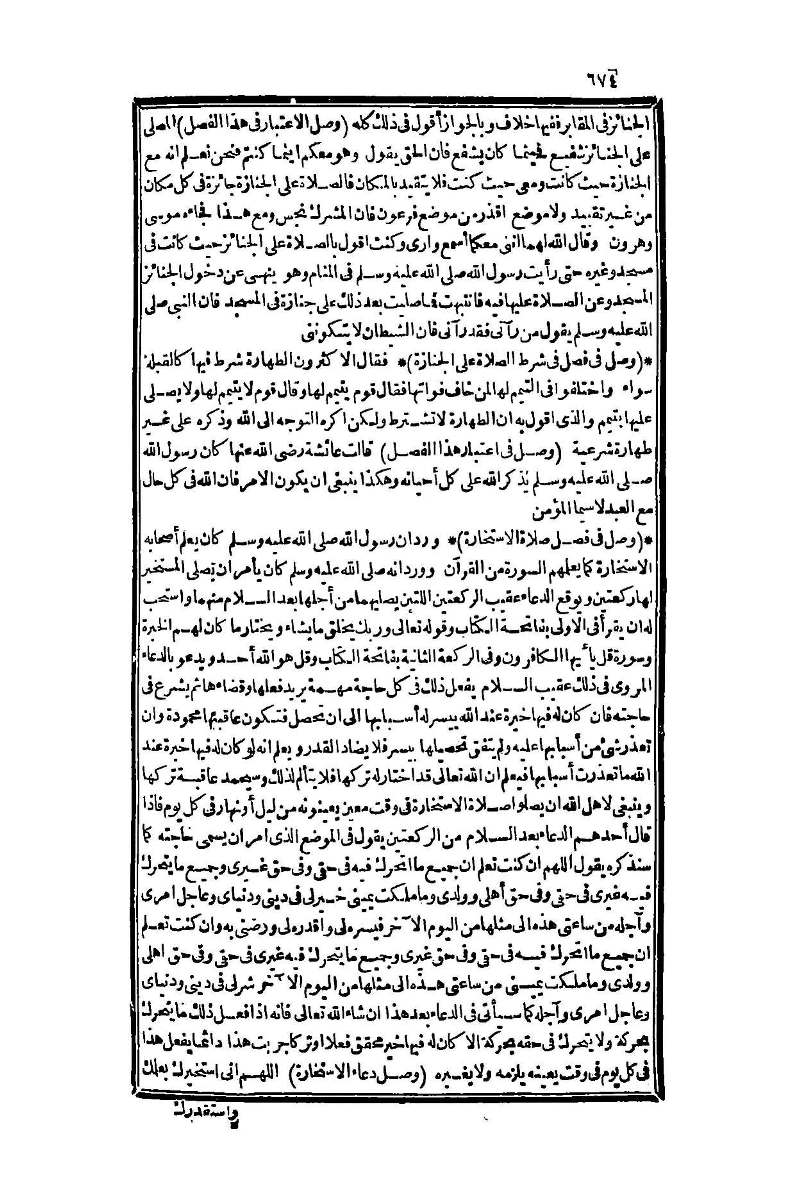 ٦٧٤
الجنائز فى المقابر ففيها خلاف وبالجواز أقول فى ذلك كله (وصل الاعتبار فى هذا الفصل) المصلى
على الجنائز شفيع فحيثما كان يشفع فان الحق يقول وهو معكم اينما كنتم فنحن نعلم انه مع
الجنازة حيث كانت ومعى حيث كنت فلا يتقيد بالمكان فالصلاة على الجنازة جائزة فى كل مكان
من غير تقييد ولا موضع اقذر من موضع فرعون فان المشرك نجس ومع هذا فجاءه موسى
وهرون وقال الله لهما اننى معكما أسمع وأرى وكنت اقول بالصلاة على الجنائز حيث كانت فى
مسجد وغيره حتى رأيت رسول الله صلى الله عليه وسلم فى المنام وهو ينهى عن دخول الجنائز
المسجد وعن الصلاة عليها فيه فانتبهت فما صليت بعد ذلك على جنازة فى المسجد فان النبى صلى
الله عليه وسلم يقول من رآنى فقد رآنى فان الشيطان لا يتكوننى
*(وصل فى فصل فى شرط الصلاة على الجنازة)* فقال الاكثرون الطهارة شرط فيها كالقبلة
سواء واختلفوا فى التيمم لها لمن خاف فواتها فقال قوم يتيمم لها وقال قوم لا يتيمم لها ولا يصلى
عليها بتيمم والذى اقول به ان الطهارة لا تشترط ولكن اكره التوجه الى الله وذكره على غير
طهارة شرعية (وصل فى اعتبار هذا الفصل) قالت عائشة رضى الله عنها كان رسول الله
صلى الله عليه وسلم يذكر الله على كل أحيانه وهكذا ينبغى ان يكون الامر فان الله فى كل حال
مع العبد لا سيما المؤمن
*(وصل فى فصل صلاة الاستخارة)* ورد ان رسول الله صلى الله عليه وسلم كان يعلم أصحابه
الاستخارة كما يعلمهم السورة من القرآن وورد انه صلى الله عليه وسلم كان يأمر ان يصلى المستخير
لها ركعتين ويوقع الدعاء عقيب الركعتين اللتين يصليهما من أجلها بعد السلام منهما واستحب
له ان يقرأ فى الاولى بفاتحة الكتاب وقوله تعالى وربك يخلق ما يشاء ويختار ما كان لهم الخيرة
وسورة قل يا أيها الكافرون وفى الركعة الثانية بفاتحة الكتاب وقل هو الله أحد ويدعو بالدعاء
المروى فى ذلك عقيب السلام يفعل ذلك فى كل حاجة مهمة يريد فعلها وقضاءها ثم يشرع فى
حاجته فان كان له فيها خيرة عند الله ييسر له أسبابها الى ان تحصل فتكون عاقبتها محمودة وان
تعذر شئ من أسبابها عليه ولم يتفق تحصيلها بيسر فلا يضاد القدر ويعلم انه لو كان له فيها خيرة عند
الله ما تعذرت أسبابها فيعلم ان الله تعالى قد اختار له تركها فلا يتألم لذلك وسيحمد عاقبة تركها
وينبغى لاهل الله ان يصلوا صلاة الاستخارة فى وقت معين يعينونه من ليل أو نهار فى كل يوم فاذا
قال أحدهم الدعاء بعد السلام من الركعتين يقول فى الموضع الذى امر ان يسمى حاجته كما
سنذكره يقول اللهم ان كنت تعلم ان جميع ما اتحرك فيه فى حقى وفى حق غيرى وجميع ما يتحرك
فيه غيرى فى حقى وفى حق أهلى وولدى وما ملكت يمينى خير لى فى دينى ودنياى وعاجل امرى
وآجله من ساعتى هذه الى مثلها من اليوم الآخر فيسره لى واقدره لى ورضنى به وان كنت تعلم
ان جميع ما اتحرك فيه فى حقى وفى حق غيرى وجميع ما يتحرك فيه غيرى فى حقى وفى حق اهلى
وولدى وما ملكت يمينى من ساعتى هذه الى مثلها من اليوم الآخر شر لى فى دينى ودنياى
وعاجل امرى وآجله كما سيأتى فى الدعاء بعد هذا ان شاء الله تعالى فانه اذا فعل ذلك ما يتحرك
بحركة ولا يتحرك فى حقه بحركة الا كان له فيها خير محقق فعلا او تركا جربت هذا دائما يفعل هذا
فى كل يوم فى وقت بعينه يلزمه ولا يغيره (وصل دعاء الاستخارة) اللهم انى استخيرك بعلمك
واستقدرك